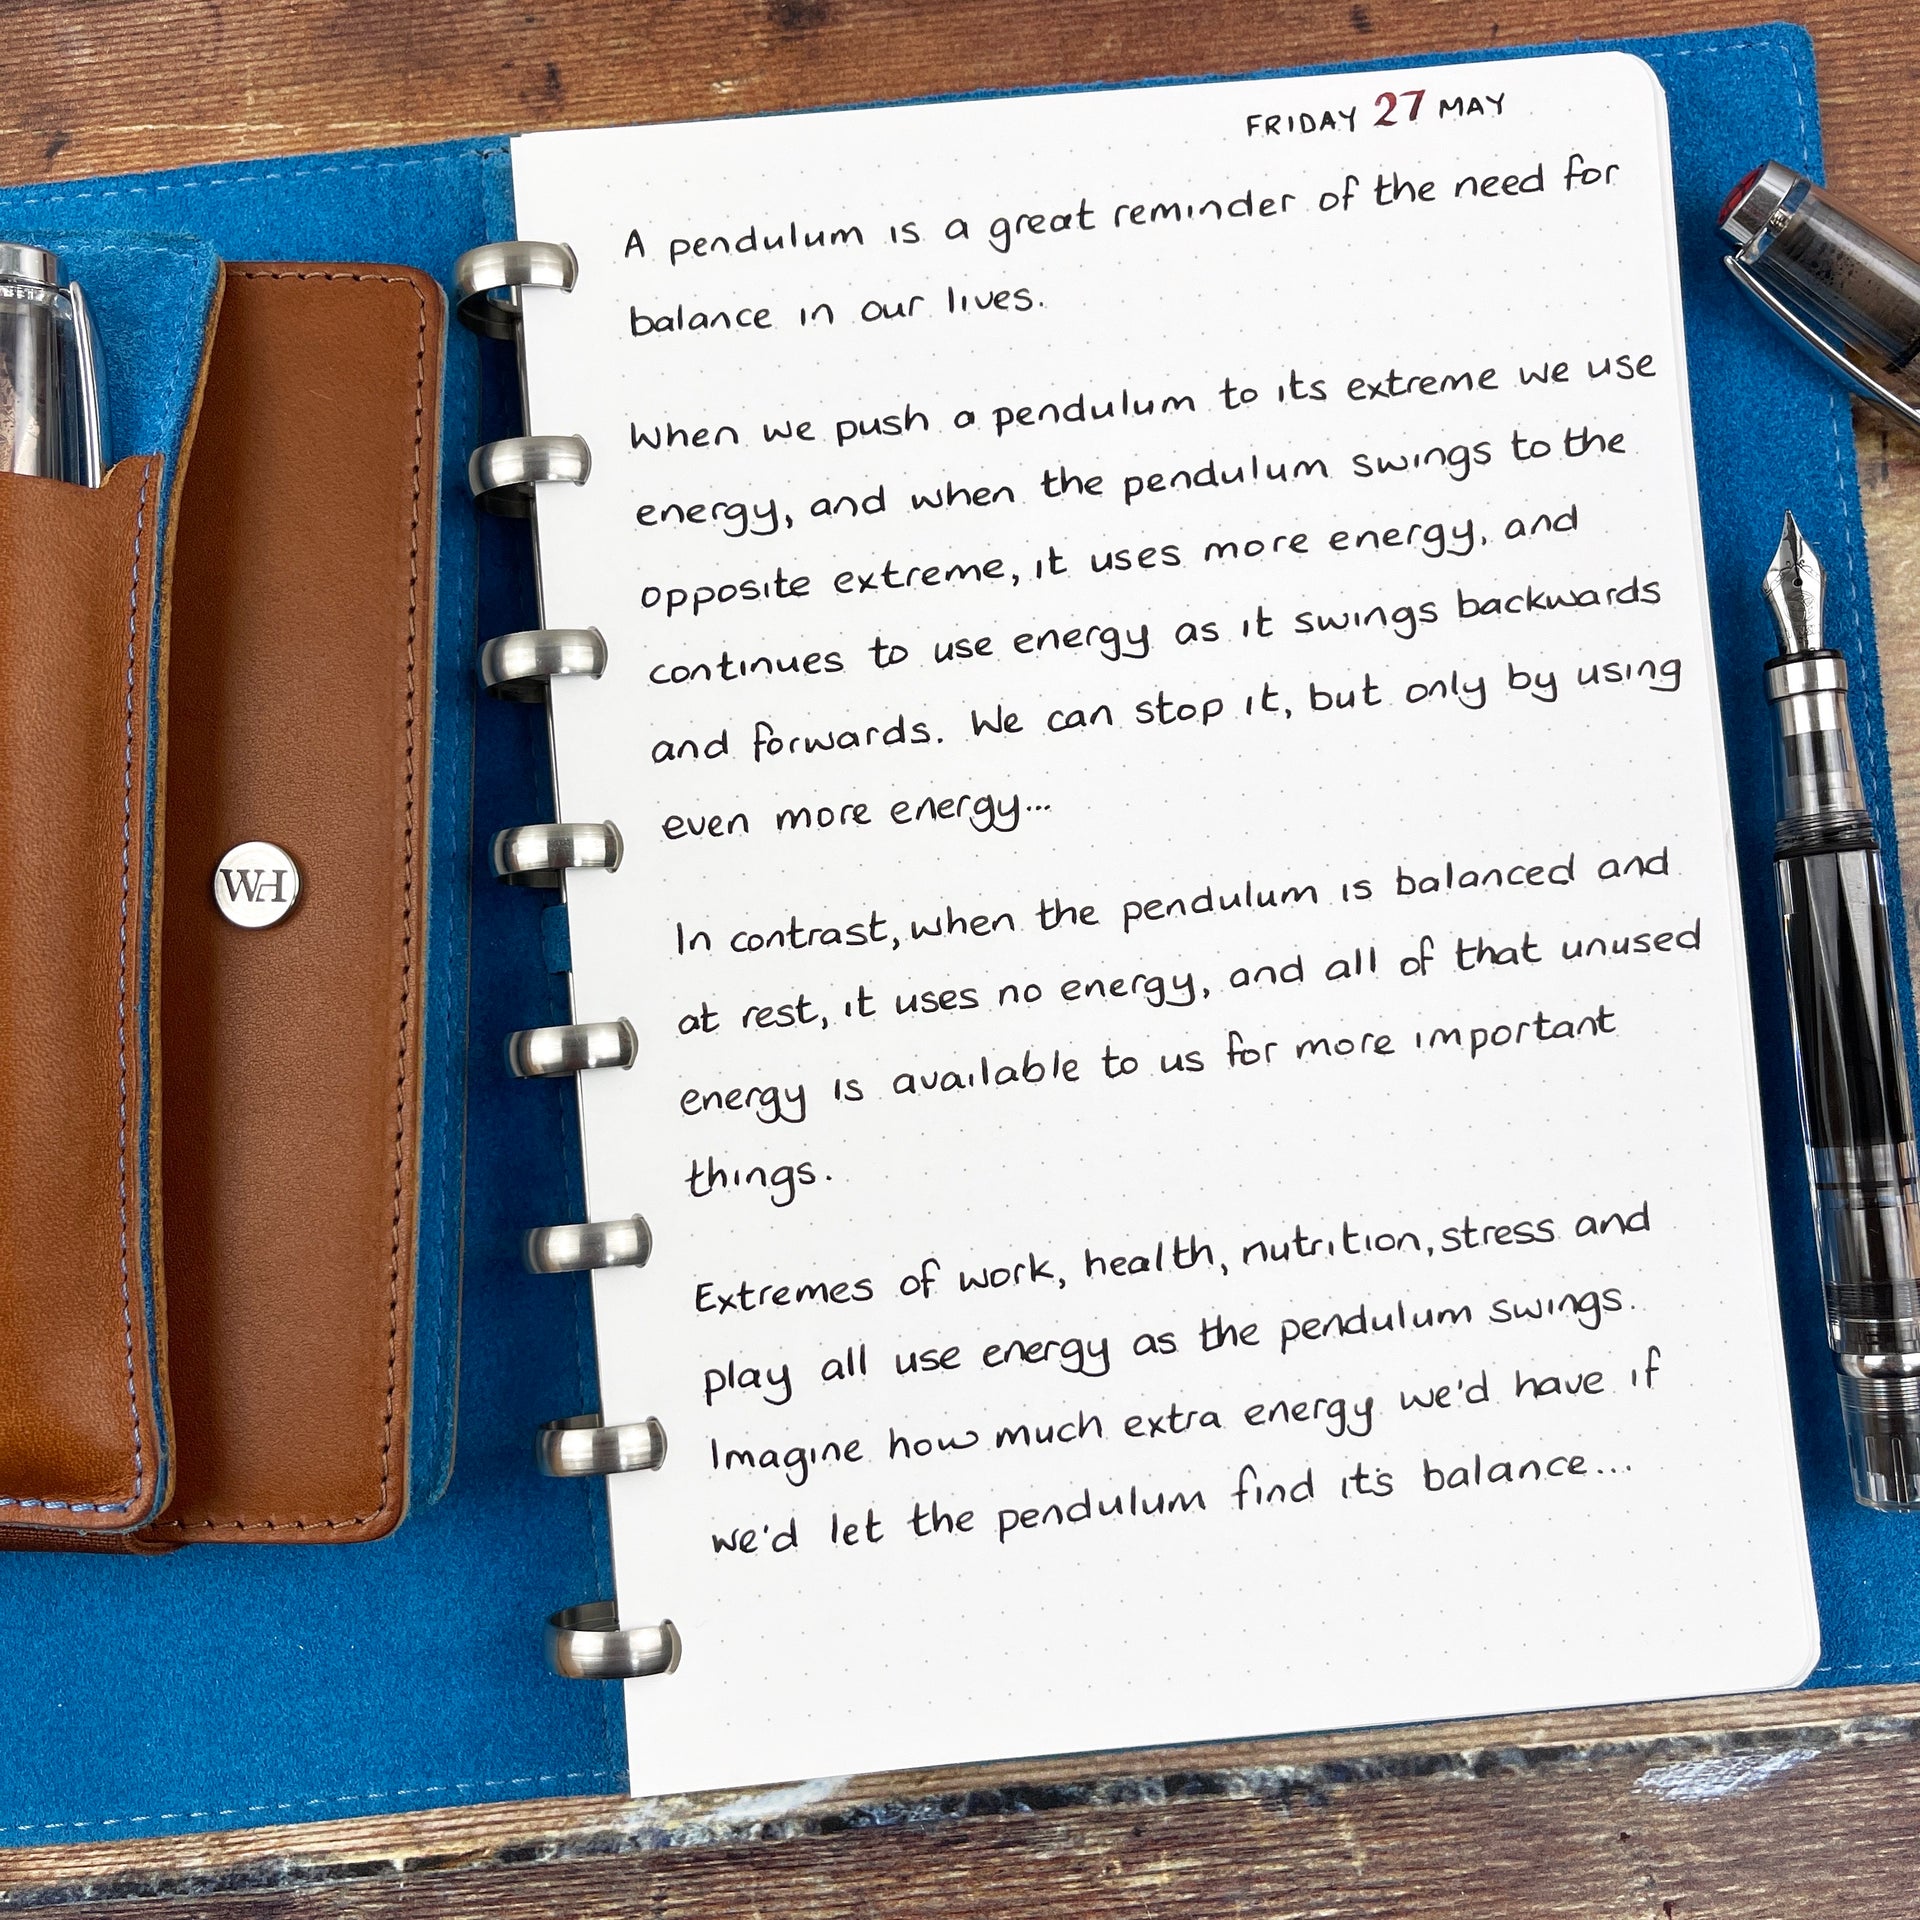 FRIDAY 27 MAY
A pendulum is a great reminder of the need for
balance in our lives.
When we push a pendulum to its extreme we use
energy, and when the pendulum swings to the
opposite extreme, it uses more energy, and
continues to use energy as it swings backwards
and forwards. We can stop it, but only by using
even more energy...
In contrast, when the pendulum is balanced and
at rest, it uses no energy, and all of that unused
energy is available to us for more important
things.
Extremes of work, health, nutrition, stress and
play all use energy as the pendulum swings.
Imagine how much extra energy we'd have if
we'd let the pendulum find it's balance...
WH